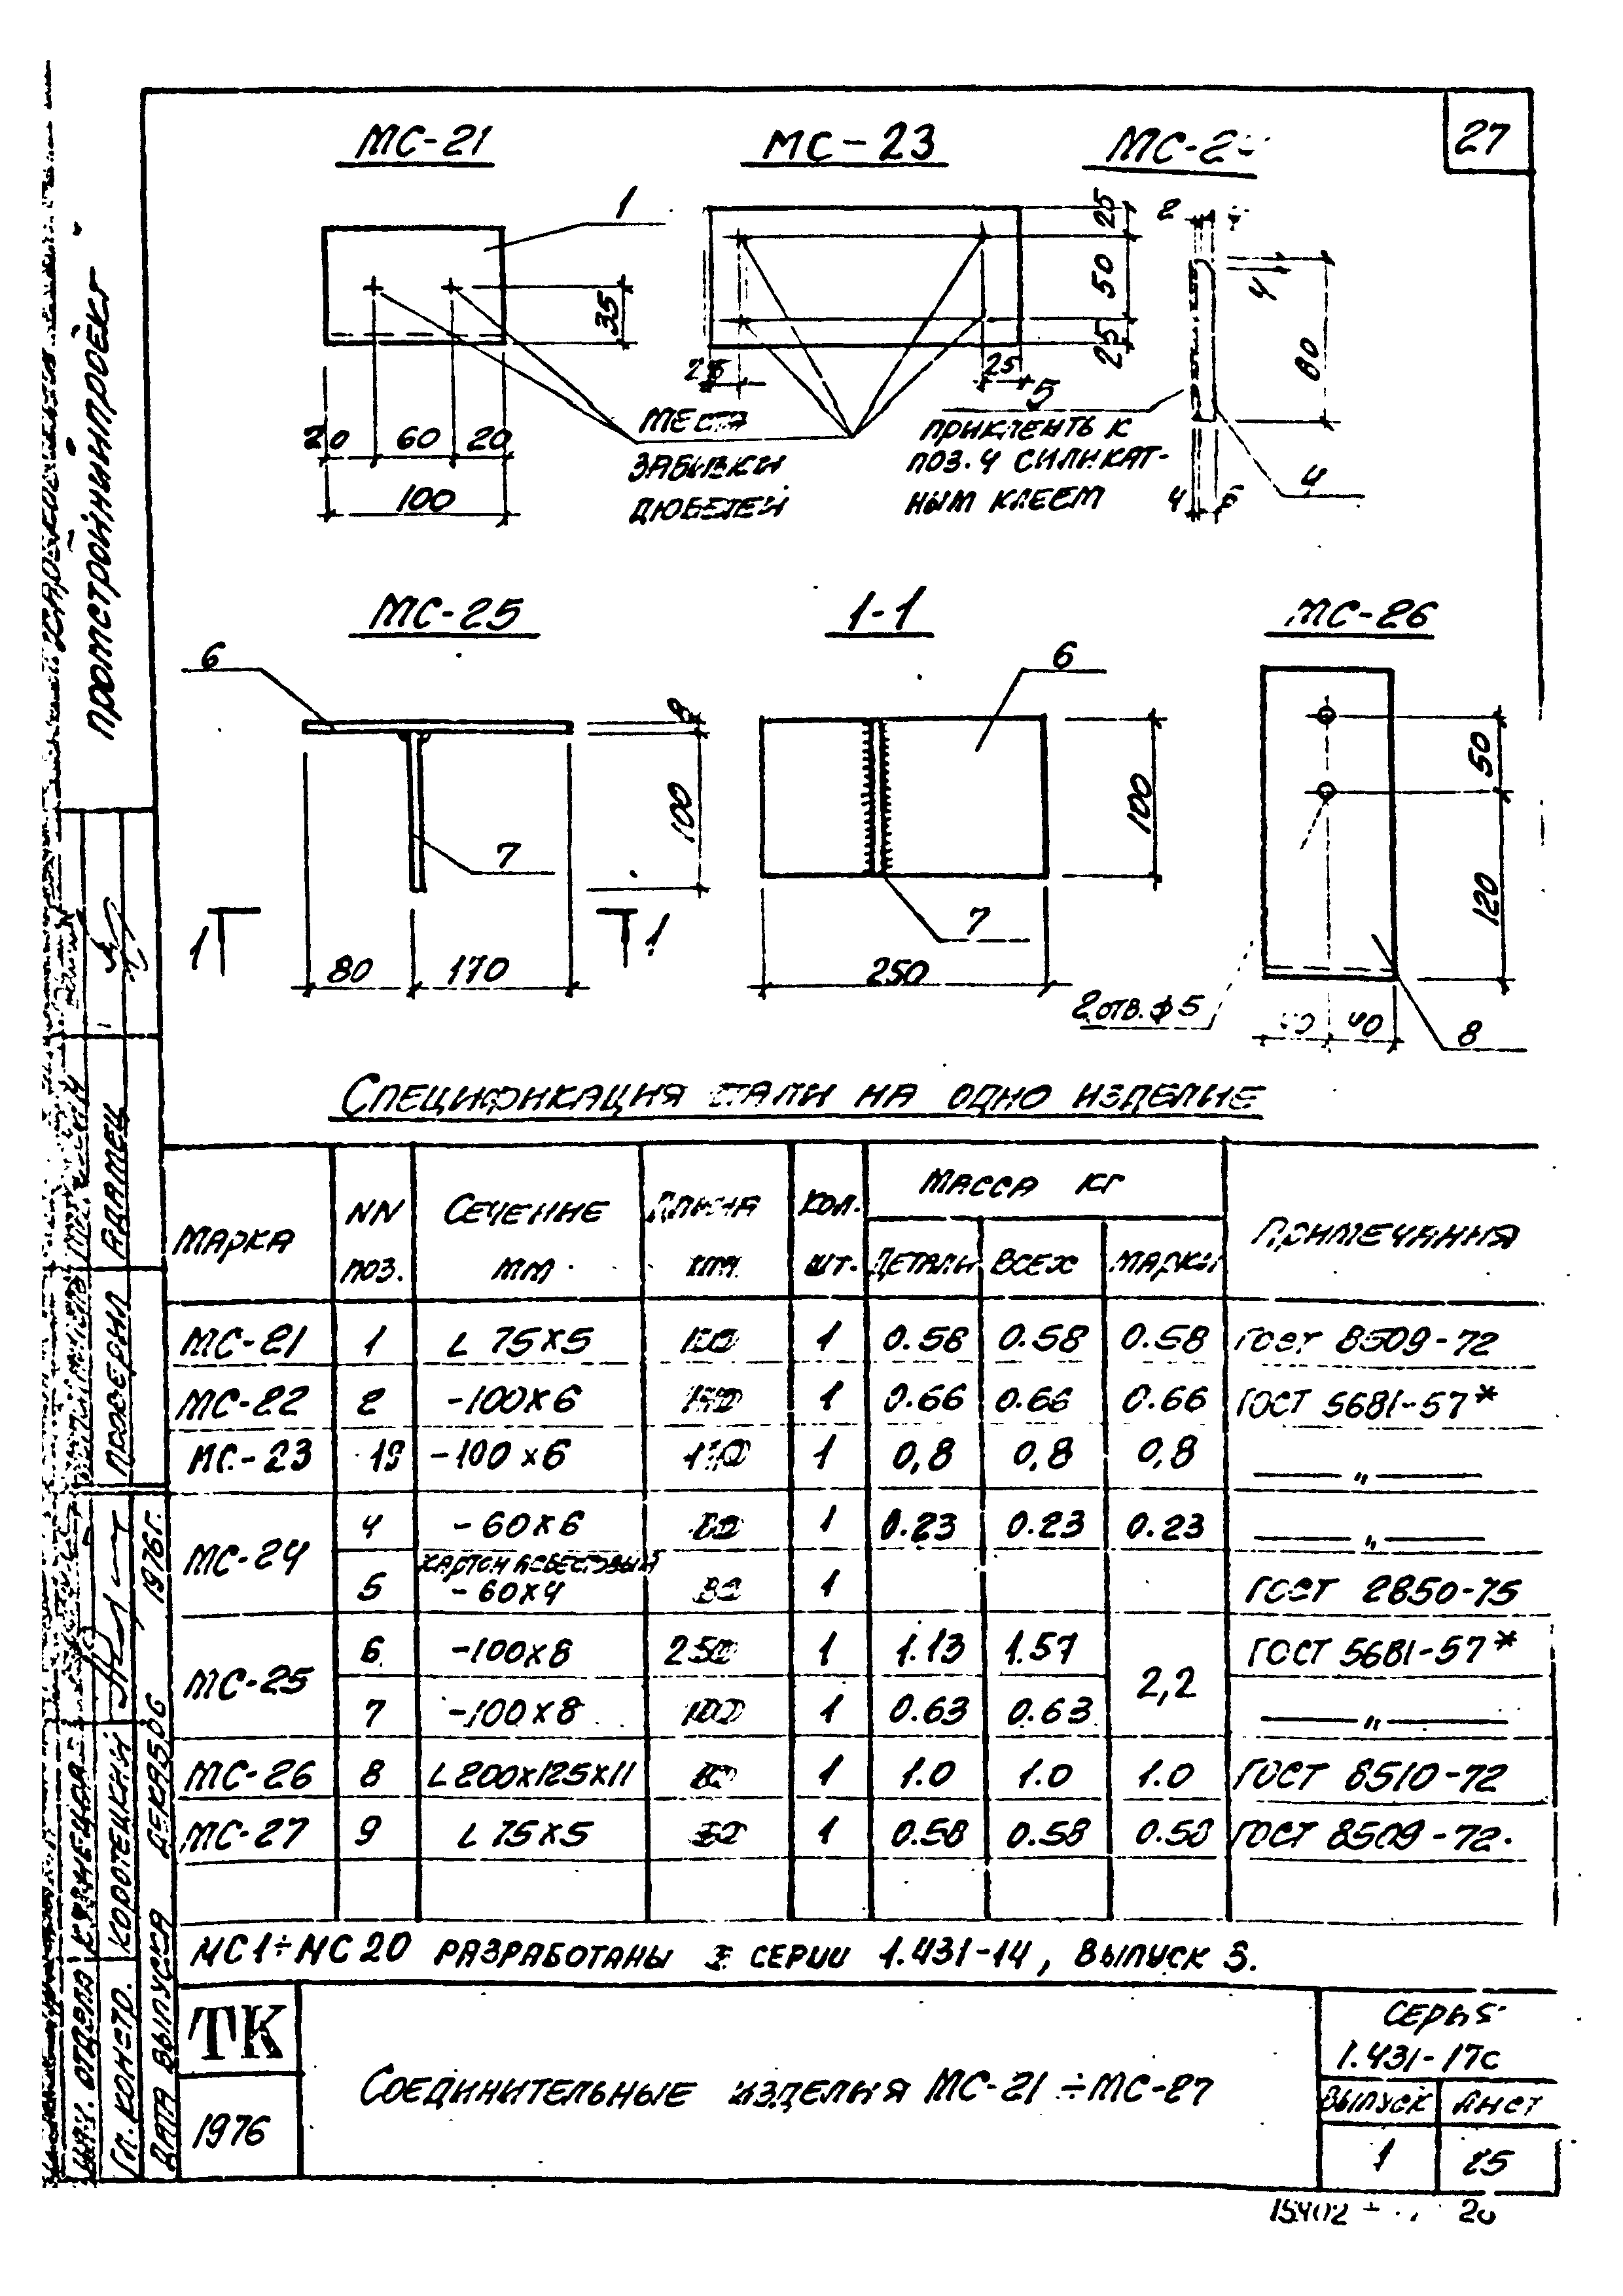 27
МС-21
МС-23
1
35
20 60 20
100
МЕСТА
ЗАБИВКИ
ДЮБЕЛЕЙ
25
50
25
25
25
2
4
80
5
ПРИКЛЕИТЬ К
ПОЗ. 4 СИЛИКАТ-
НЫМ КЛЕЕМ
4
4
МС-25
6
8
100
7
1 1
80 170
1-1
6
100
7
250
МС-26
50
120
2 ОТВ. ф 5
40
8
СПЕЦИФИКАЦИЯ СТАЛИ НА ОДНО ИЗДЕЛИЕ
МАРКА NN ПОЗ. СЕЧЕНИЕ ММ ДЛИНА ММ КОЛ. ШТ. МАССА КГ ПРИМЕЧАНИЯ
ДЕТАЛИ ВСЕХ МАРКИ
МС-21 1 L 75х5 1 0.58 0.58 0.58 ГОСТ 8509-72
МС-22 2 -100х6 1 0.66 0.66 0.66 ГОСТ 5681-57*
МС-23 -100х6 1 0,8 0,8 0,8 —„—
МС-24 4 -60х6 1 0.23 0.23 0.23 —„—
5 КАРТОН АСБЕСТОВЫЙ
-60х4 1 ГОСТ 2850-75
МС-25 6 -100х8 250 1 1.13 1.57 2,2 ГОСТ 5681-57*
7 -100х8 100 1 0.63 0.63 —„—
МС-26 8 L 200х125х11 1 1.0 1.0 1.0 ГОСТ 8510-72
МС-27 9 L 75х5 1 0.58 0.58 0.58 ГОСТ 8509-72.
МС1÷МС20 РАЗРАБОТАНЫ В СЕРИИ 1.431-14, ВЫПУСК 3.
ТК
1976
СОЕДИНИТЕЛЬНЫЕ ИЗДЕЛИЯ МС-21÷МС-27
СЕРИЯ
1.431-17с
ВЫПУСК ЛИСТ
1 25
15402
20
ПРОМСТРОЙНИИПРОЕКТ
ПРОВЕРИЛ АДАМЕЦ
НАЧ. ОТДЕЛА
ГЛ. КОНСТР. КОРОТЕЦКИЙ
ДАТА ВЫПУСКА ДЕКАБРЬ 1976г.